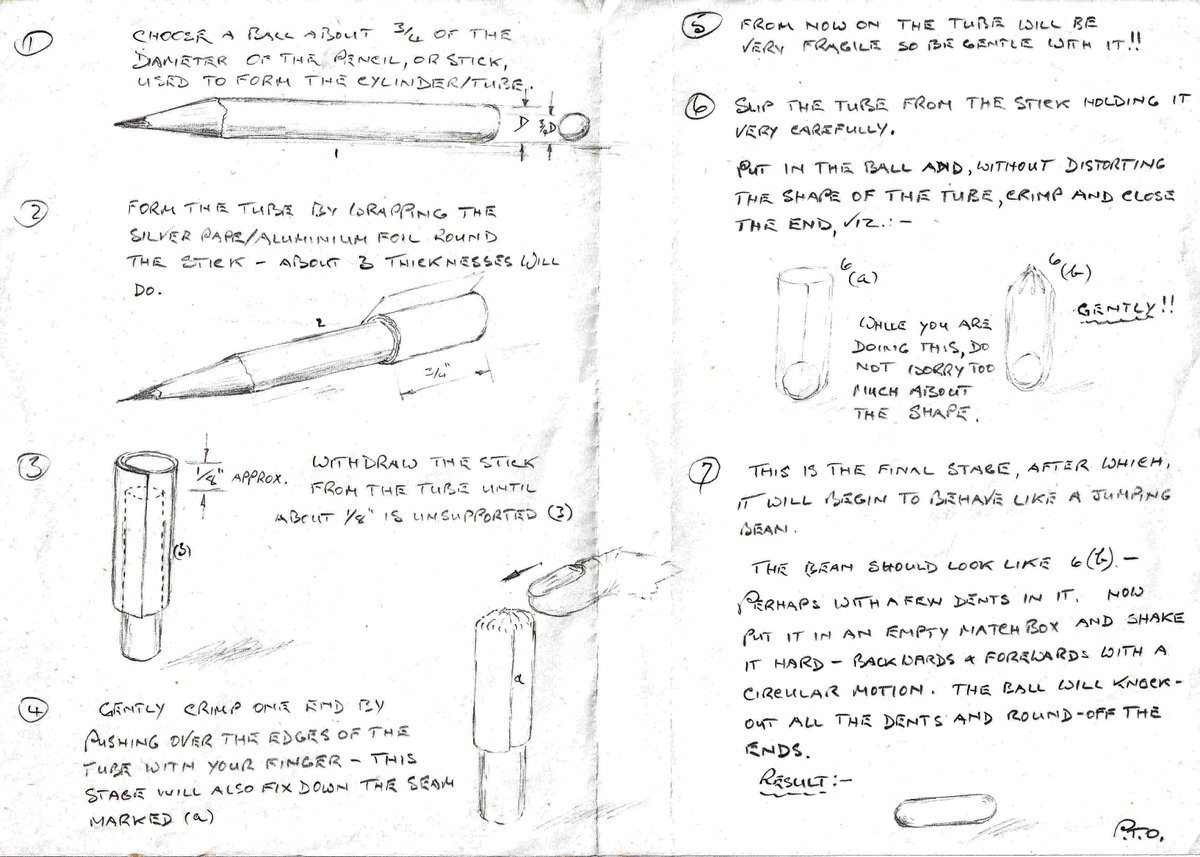 1
CHOOSE A BALL ABOUT 3/4 OF THE
DIAMETER OF THE PENCIL, OR STICK,
USED TO FORM THE CYLINDER/TUBE.
D
3/4D
1
2
FORM THE TUBE BY WRAPPING THE
SILVER PAPE/ALUMINIUM FOIL ROUND
THE STICK – ABOUT 3 THICKNESSES WILL
DO.
2
3/4"
3
1/8" APPROX.
(3)
WITHDRAW THE STICK
FROM THE TUBE UNTIL
ABOUT 1/8" IS UNSUPPORTED (3)
a
4
GENTLY CRIMP ONE END BY
PUSHING OVER THE EDGES OF THE
TUBE WITH YOUR FINGER – THIS
STAGE WILL ALSO FIX DOWN THE SEAM
MARKED (a)
5
FROM NOW ON THE TUBE WILL BE
VERY FRAGILE SO BE GENTLE WITH IT!!
6
SLIP THE TUBE FROM THE STICK HOLDING IT
VERY CAREFULLY.
PUT IN THE BALL AND, WITHOUT DISTORTING
THE SHAPE OF THE TUBE, CRIMP AND CLOSE
THE END, VIZ.:-
6(a)
6(b)
GENTLY!!
WHILE YOU ARE
DOING THIS, DO
NOT WORRY TOO
MUCH ABOUT
THE SHAPE.
7
THIS IS THE FINAL STAGE, AFTER WHICH,
IT WILL BEGIN TO BEHAVE LIKE A JUMPING
BEAN.
THE BEAN SHOULD LOOK LIKE 6(b).–
PERHAPS WITH A FEW DENTS IN IT. NOW
PUT IT IN AN EMPTY MATCHBOX AND SHAKE
IT HARD – BACKWARDS & FOREWARDS WITH A
CIRCULAR MOTION. THE BALL WILL KNOCK-
OUT ALL THE DENTS AND ROUND-OFF THE
ENDS.
RESULT:-
P.T.O.